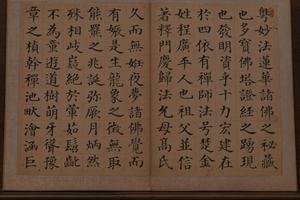 粵妙法蓮華諸佛之秘藏
也多寶佛塔證經之踴現
也發明資乎十力宏建在
於四依有禪師法号楚金
姓程廣平人也祖父並信
著釋門慶歸法胤母高氏
久而無妊夜夢諸佛覺而
有娠是生龍象之徵無取
熊羆之兆誕弥厥月炳然
殊相歧嶷絕於葷茹髫齔
不為童遊道樹萌牙聳豫
章之楨幹禪池畎澮涵巨